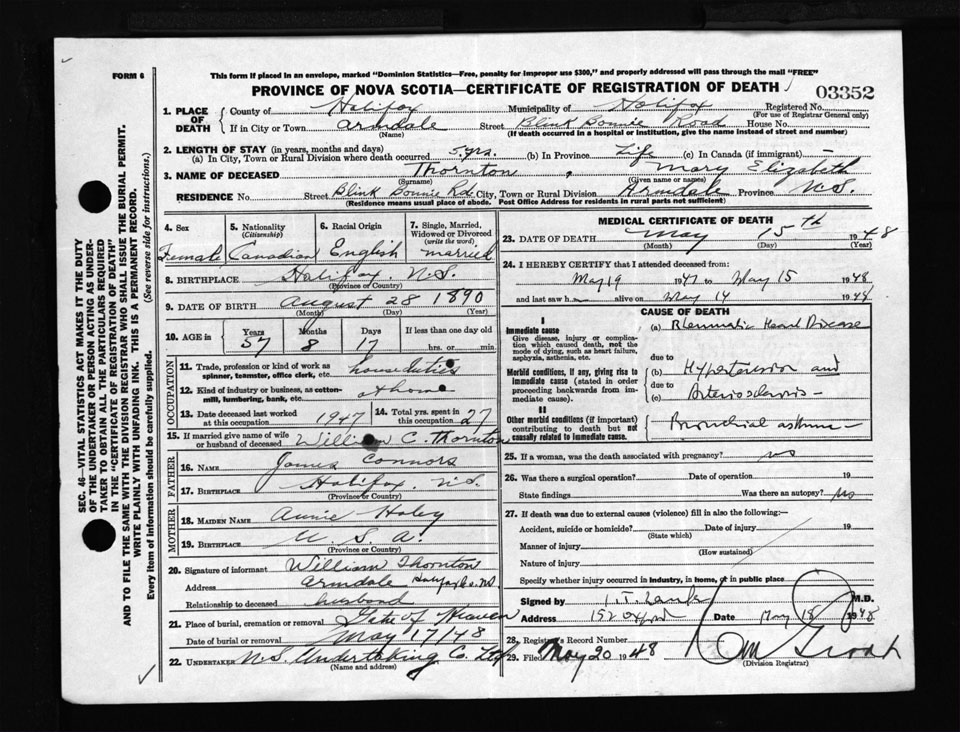 FORM 6
This form if placed in an envelope, marked "Dominion Statistics—Free, penalty for improper use $300," and properly addressed will pass through the mail "FREE"
PROVINCE OF NOVA SCOTIA—CERTIFICATE OF REGISTRATION OF DEATH
03352
1. PLACE OF DEATH County of Halifax Municipality of Halifax Registered No.
(For use of Registrar General only)
If in City or Town Armdale Street Blink Bonnie Road House No.
(Name) (If death occurred in a hospital or institution, give the name instead of street and number)
2. LENGTH OF STAY (in years, months and days)
(a) In City, Town or Rural Division where death occurred 5 yrs. (b) In Province Life (c) In Canada (if immigrant)
3. NAME OF DECEASED Thornton, Mary Elizabeth
(Surname) (Given name or names)
RESIDENCE No. Street Blink Bonnie Rd. City, Town or Rural Division Armdale Province N.S.
(Residence means usual place of abode. Post Office Address for residents in rural parts not sufficient)
4. Sex 5. Nationality (Citizenship) 6. Racial Origin 7. Single, Married, Widowed or Divorced (write the word)
Female Canadian English married
8. BIRTHPLACE Halifax, N.S.
(Province or Country)
9. DATE OF BIRTH August 28 1890
(Month) (Day) (Year)
10. AGE in Years Months Days If less than one day old
57 8 17 hrs. or min.
OCCUPATION
11. Trade, profession or kind of work as spinner, teamster, office clerk, etc. house duties
12. Kind of industry or business, as cotton-mill, lumbering, bank, etc. at home
13. Date deceased last worked at this occupation 1947 14. Total yrs. spent in this occupation 27
15. If married give name of wife or husband of deceased William C. Thornton
FATHER
16. NAME James Connors
17. BIRTHPLACE Halifax, N.S.
(Province or Country)
MOTHER
18. MAIDEN NAME Annie Haley
19. BIRTHPLACE U.S.A.
(Province or Country)
20. Signature of informant William Thornton
Address Armdale Halifax Co. N.S.
Relationship to deceased husband
21. Place of burial, cremation or removal Gate of Heaven
Date of burial or removal May 17/48
22. UNDERTAKER N.S. Undertaking Co. Ltd
(Name and address)
MEDICAL CERTIFICATE OF DEATH
23. DATE OF DEATH May 15th 1948
(Month) (Day) (Year)
24. I HEREBY CERTIFY that I attended deceased from:
May 19 1947 to May 15 1948
and last saw h alive on May 14 1948
CAUSE OF DEATH
I
Immediate cause
Give disease, injury or complication which caused death, not the mode of dying, such as heart failure, asphyxia, asthenia, etc.
(a) Rheumatic Heart Disease
due to
Morbid conditions, if any, giving rise to immediate cause (stated in order proceeding backwards from immediate cause)
(b) Hypertension and
due to
(c) Arteriosclerosis
II
Other morbid conditions (if important) contributing to death but not causally related to immediate cause.
Bronchial asthma
25. If a woman, was the death associated with pregnancy? no
26. Was there a surgical operation? Date of operation 19
State findings Was there an autopsy? No
27. If death was due to external causes (violence) fill in also the following:—
Accident, suicide or homicide? Date of injury 19
(State which)
Manner of injury
(How sustained)
Nature of injury
Specify whether injury occurred in industry, in home, or in public place
Signed by M.D.
Address 152 Oxford Date May 18 1948
28. Registrar's Record Number
29. Filed May 20 1948
(Division Registrar)
SEC. 46—VITAL STATISTICS ACT MAKES IT THE DUTY
OF THE UNDERTAKER OR PERSON ACTING AS UNDER-
TAKER TO OBTAIN ALL THE PARTICULARS REQUIRED
IN THE "CERTIFICATE OF REGISTRATION OF DEATH"
AND TO FILE THE SAME WITH THE DIVISION REGISTRAR WHO SHALL ISSUE THE BURIAL PERMIT.
WRITE PLAINLY WITH UNFADING INK. THIS IS A PERMANENT RECORD.
Every item of information should be carefully supplied. (See reverse side for instructions.)